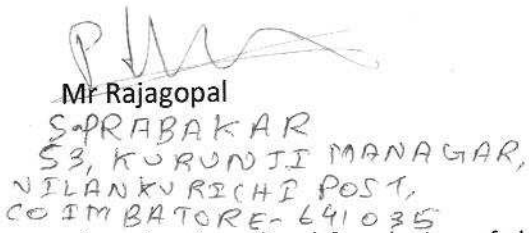 Mr Rajagopal
S.PRABAKAR
53, KURUNJI MANAGAR,
VILANKURICHI POST,
COIMBATORE- 641035